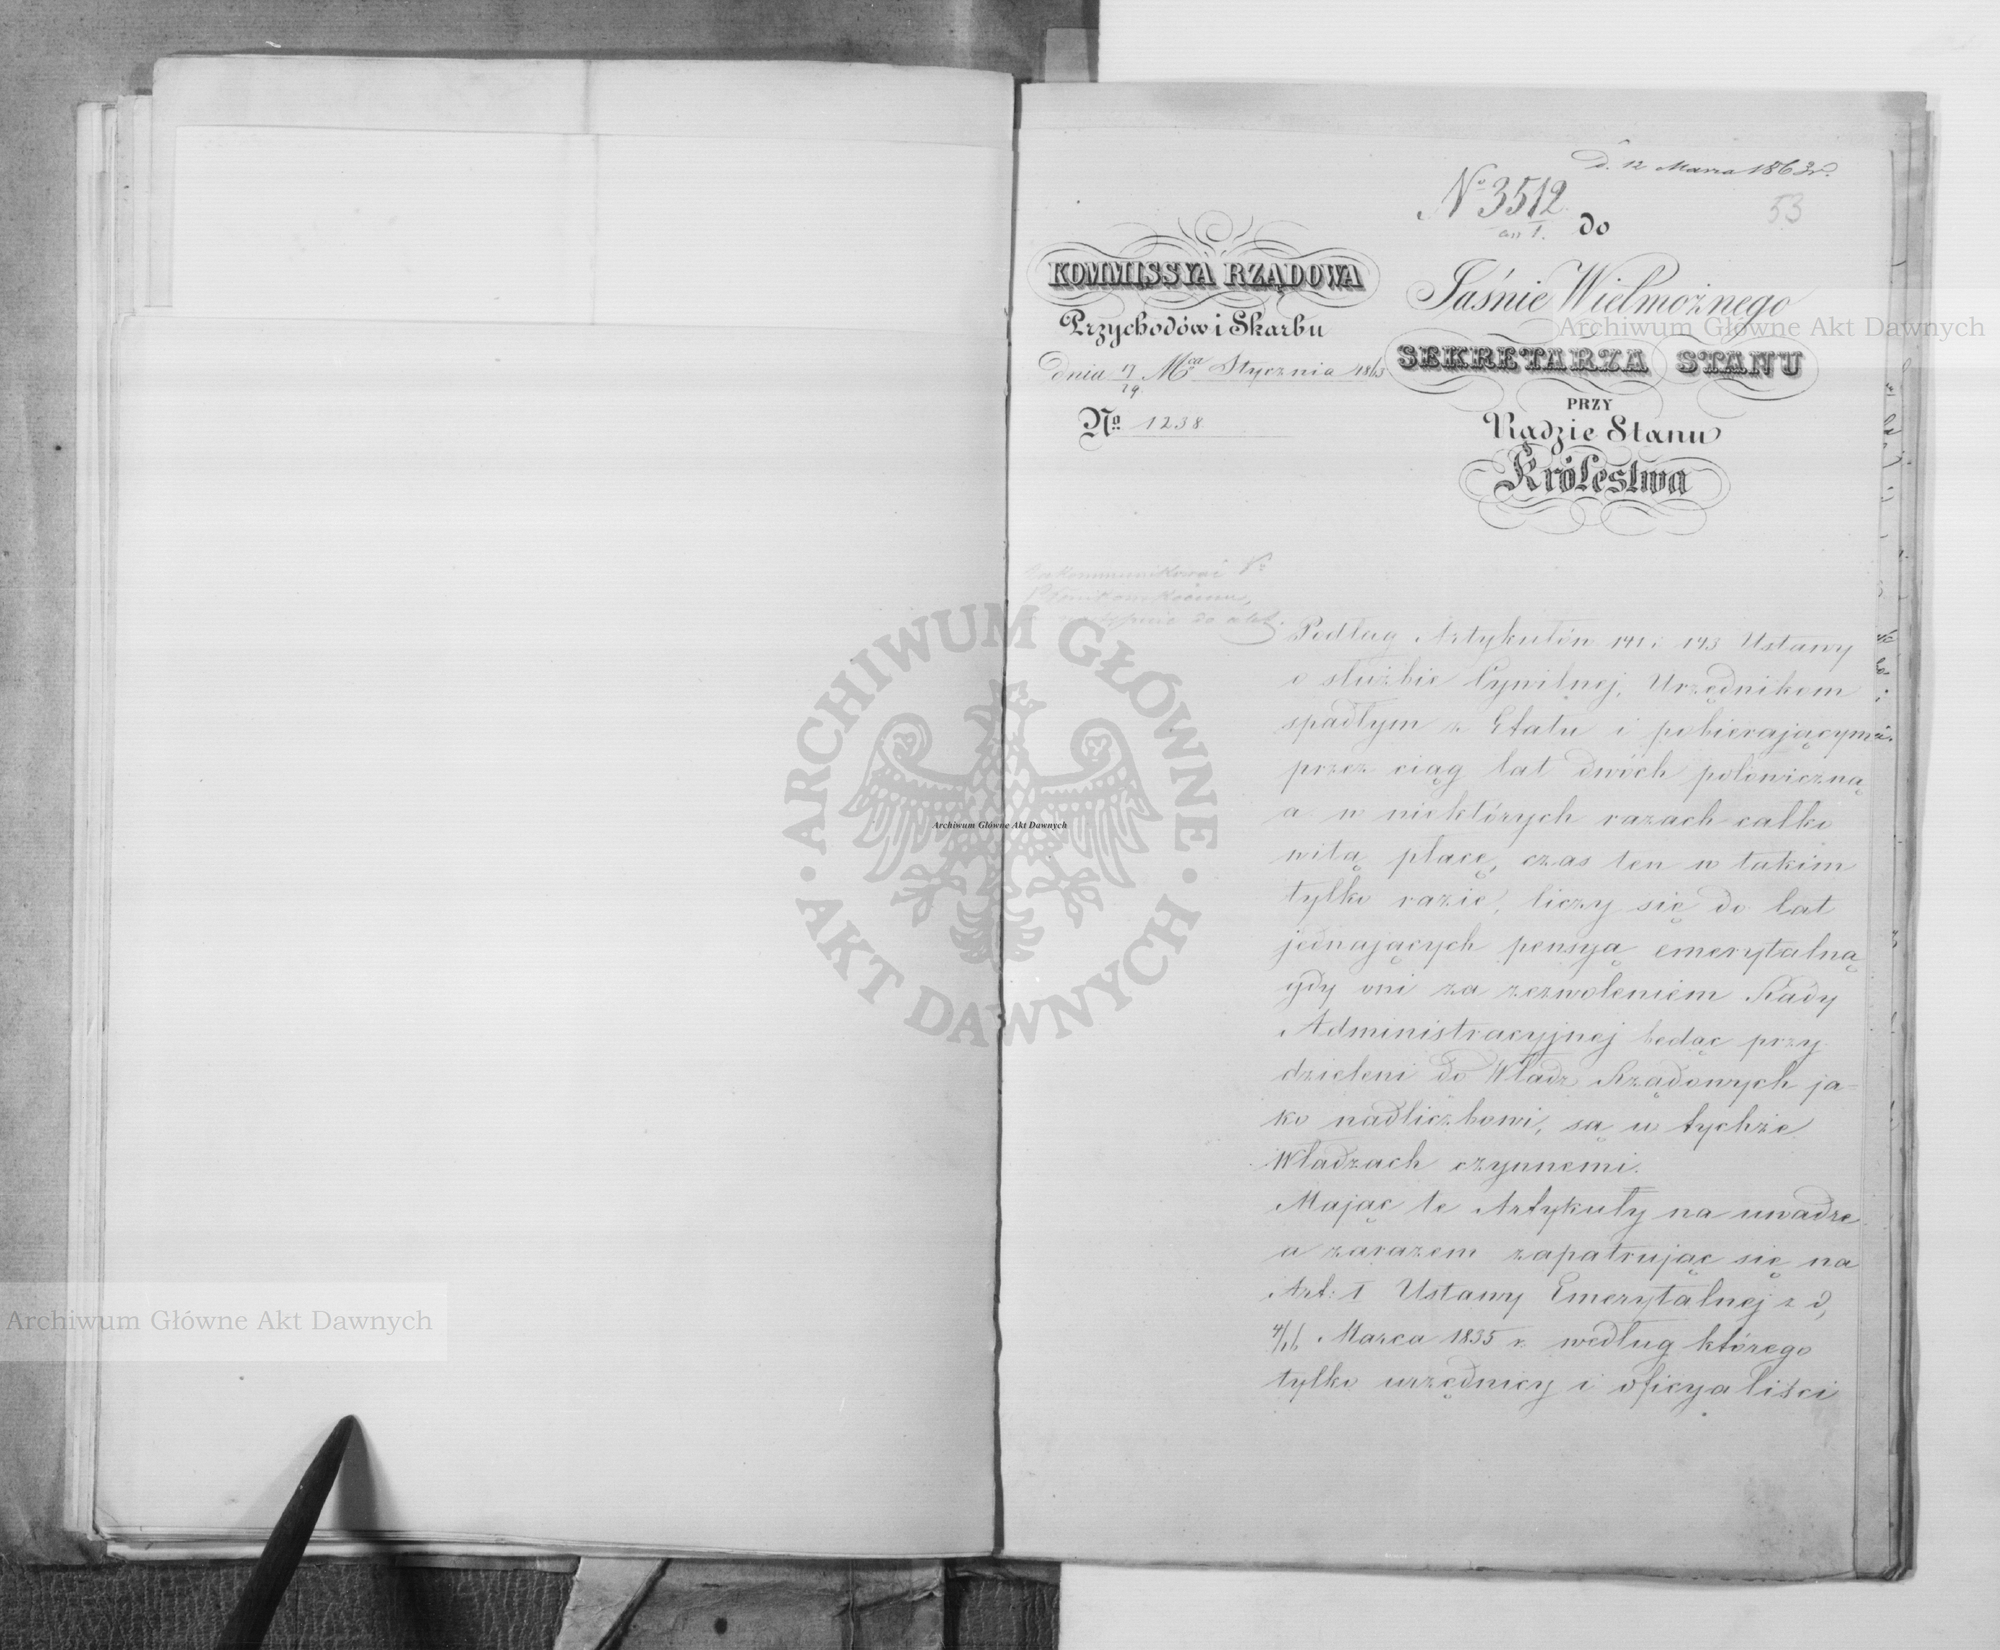 d. 12 Marca 1863 r.
№ 3512
53
do
KOMMISSYA RZĄDOWA
Przychodów i Skarbu
dnia 17/29 Mca Stycznia 1863
No 1238
Jaśnie Wielmożnego
SEKRETARZA STANU
PRZY
Radzie Stanu
Królestwa
zakommunikować
do akt.
Podług Artykułów 141 i 143 Ustawy
o służbie Cywilnej, Urzędnikom
spadłym z Etatu i pobierającym
przez ciąg lat dwóch połowiczną
a w niektórych razach całko
witą płacę, czas ten w takim
tylko razie, liczy się do lat
jednających pensyą emerytalną
gdy oni za zezwoleniem Rady
Administracyjnej będąc przy
dzieleni do Władz Rządowych ja-
ko nadliczbowi, są w tychże
Władzach czynnemi.
Mając te Artykuły na uwadze
a zarazem zapatrując się na
Art: 1 Ustawy Emerytalnej z d,
4/16 Marca 1835 r. według którego
tylko urzędnicy i oficyaliści
ARCHIWUM GŁÓWNE · AKT DAWNYCH · A
Archiwum Główne Akt Dawnych
Archiwum Główne Akt Dawnych
Archiwum Główne Akt Dawnych